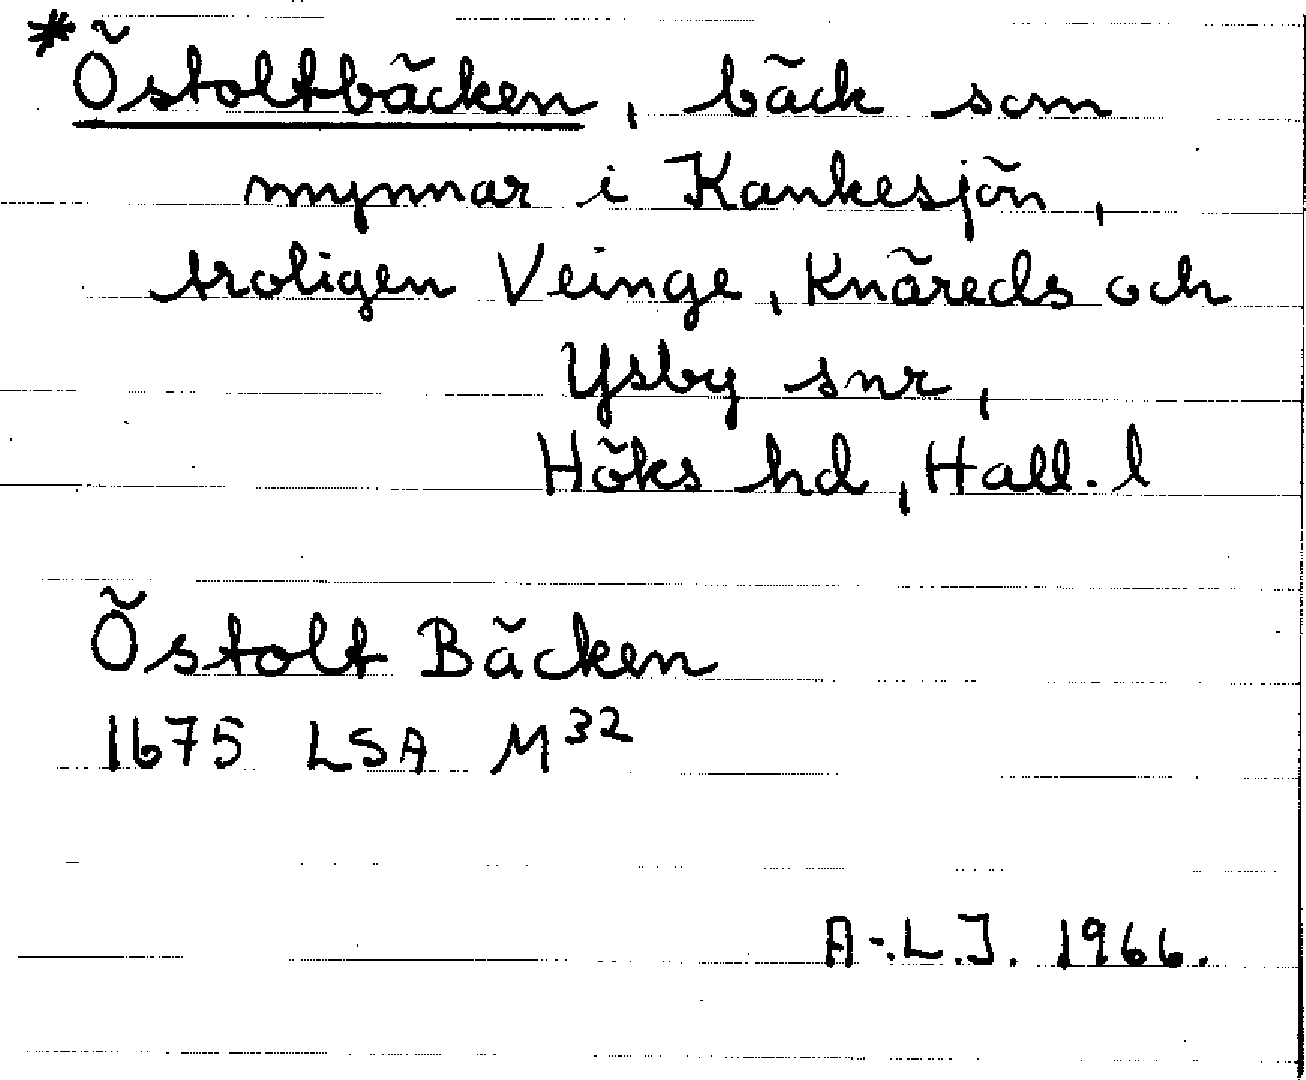 *Östoltbäcken, bäck som
mynnar i Kankesjön,
troligen Veinge, Knäreds och
Ysby snr,
Höks hd, Hall. l
Östolt Bäcken
1675 LSA M³²
A-.L.J. 1966.